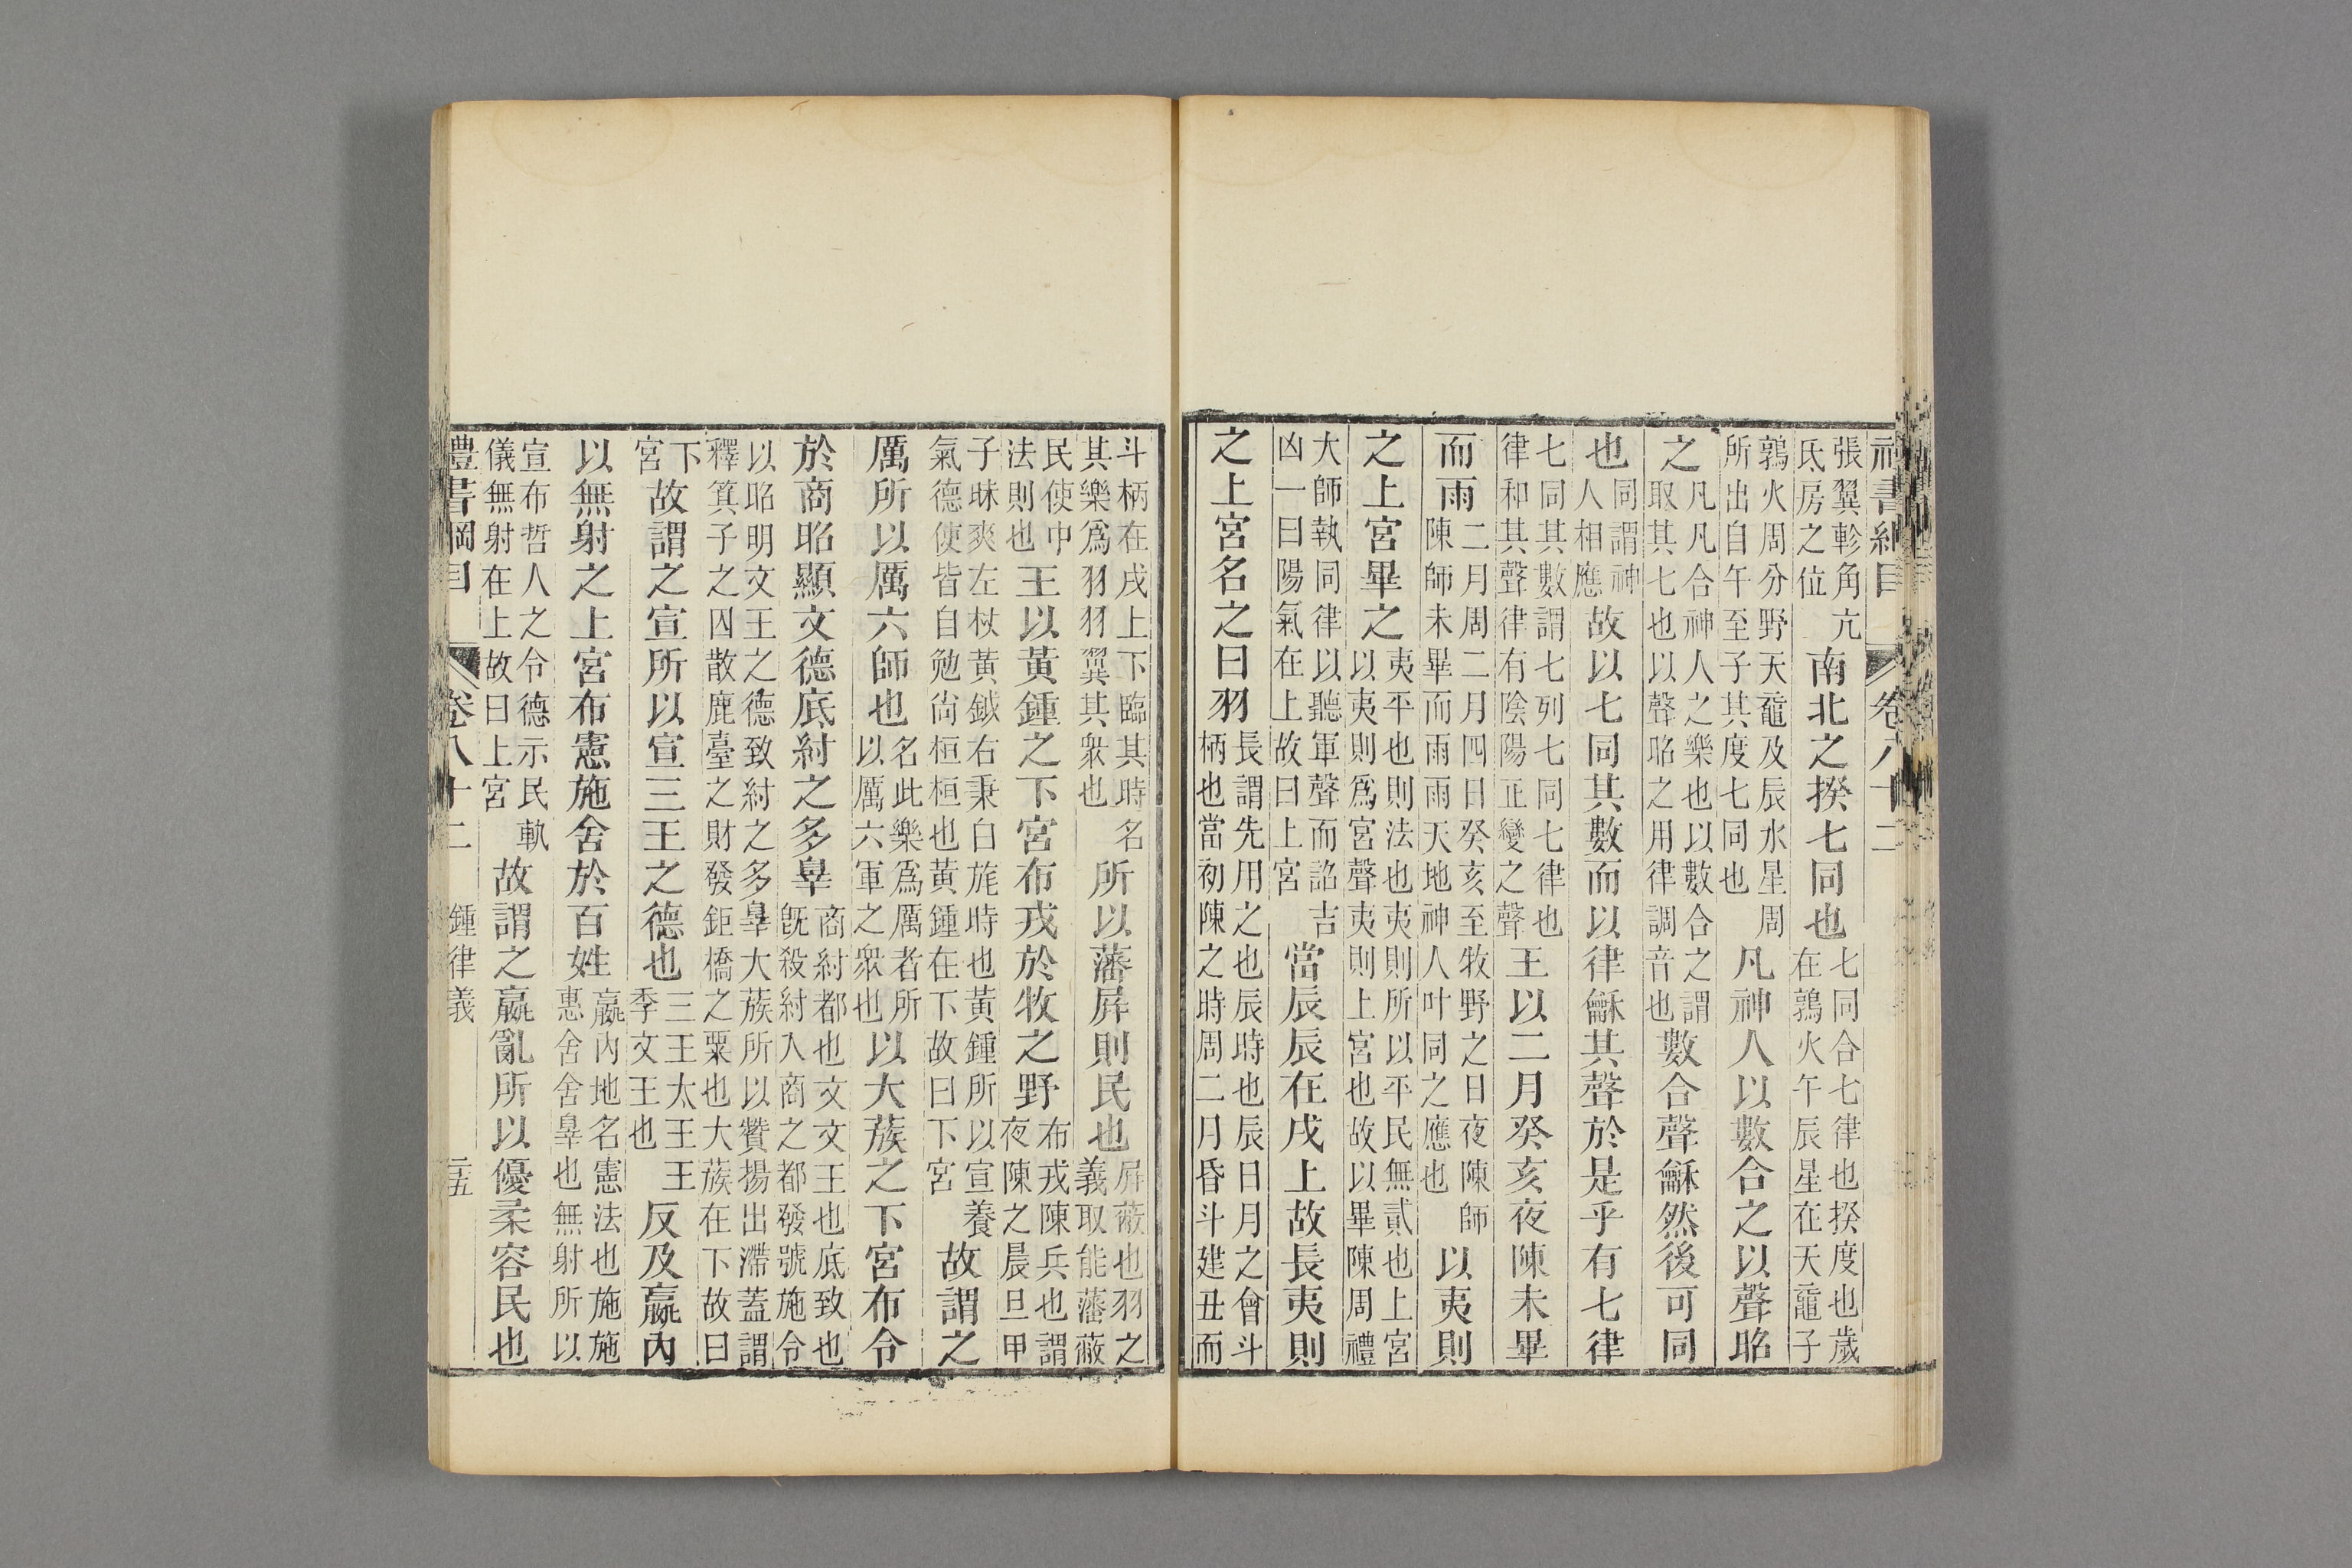 禮書綱目 卷八十二
張翼軫角亢氐房之位南北之揆七同也七同合七律也揆度也歲在鶉火午辰星在天黿子
鶉火周分野天黿及辰水星周所出自午至子其度七同也凡神人以數合之以聲昭
之凡凡合神人之樂也以數合之謂取其七也以聲昭之用律調音也數合聲龢然後可同
也同謂神人相應故以七同其數而以律龢其聲於是乎有七律
七同其數謂七列七同七律也律和其聲律有陰陽正變之聲王以二月癸亥夜陳未畢
而雨二月周二月四日癸亥至牧野之日夜陳師陳師未畢而雨雨天地神人叶同之應也以夷則
之上宮畢之夷平也則法也夷則所以平民無貳也上宮以夷則爲宮聲夷則上宮也故以畢陳周禮
大師執同律以聽軍聲而詔吉凶一曰陽氣在上故曰上宮當辰辰在戌上故長夷則
之上宮名之曰羽長謂先用之也辰時也辰日月之會斗柄也當初陳之時周二月昏斗建丑而
斗柄在戌上下臨其時名其樂爲羽羽翼其衆也所以藩屏則民也屏蔽也羽之義取能藩蔽
民使中法則也王以黃鍾之下宮布戎於牧之野布戎陳兵也謂夜陳之晨旦甲
子昧爽左杖黃鉞右秉白旄時也黃鍾所以宣養氣德使皆自勉尙桓桓也黃鍾在下故曰下宮故謂之
厲所以厲六師也名此樂爲厲者所以厲六軍之衆也以大蔟之下宮布令
於商昭顯文德底紂之多辠商紂都也文文王也底致也旣殺紂入商之都發號施令
以昭明文王之德致紂之多辠大蔟所以贊揚出滯蓋謂釋箕子之囚散鹿臺之財發鉅橋之粟也大蔟在下故曰
下宮故謂之宣所以宣三王之德也三王太王王季文王也反及嬴內
以無射之上宮布憲施舍於百姓嬴內地名憲法也施施惠舍舍辠也無射所以
宣布哲人之令德示民軌儀無射在上故曰上宮故謂之嬴亂所以優柔容民也
禮書綱目 卷八十二 鍾律義 二五